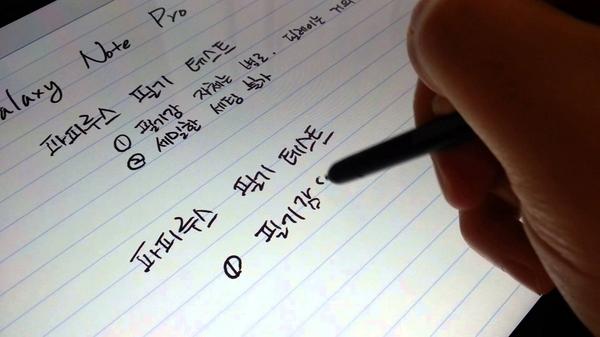 alaxy Note Pro
파피루스 필기 테스트
① 필기감 자체는 별로. 딜레이는 거의
② 세밀한 세팅 불가
파피루스 필기 테스트
① 필기감